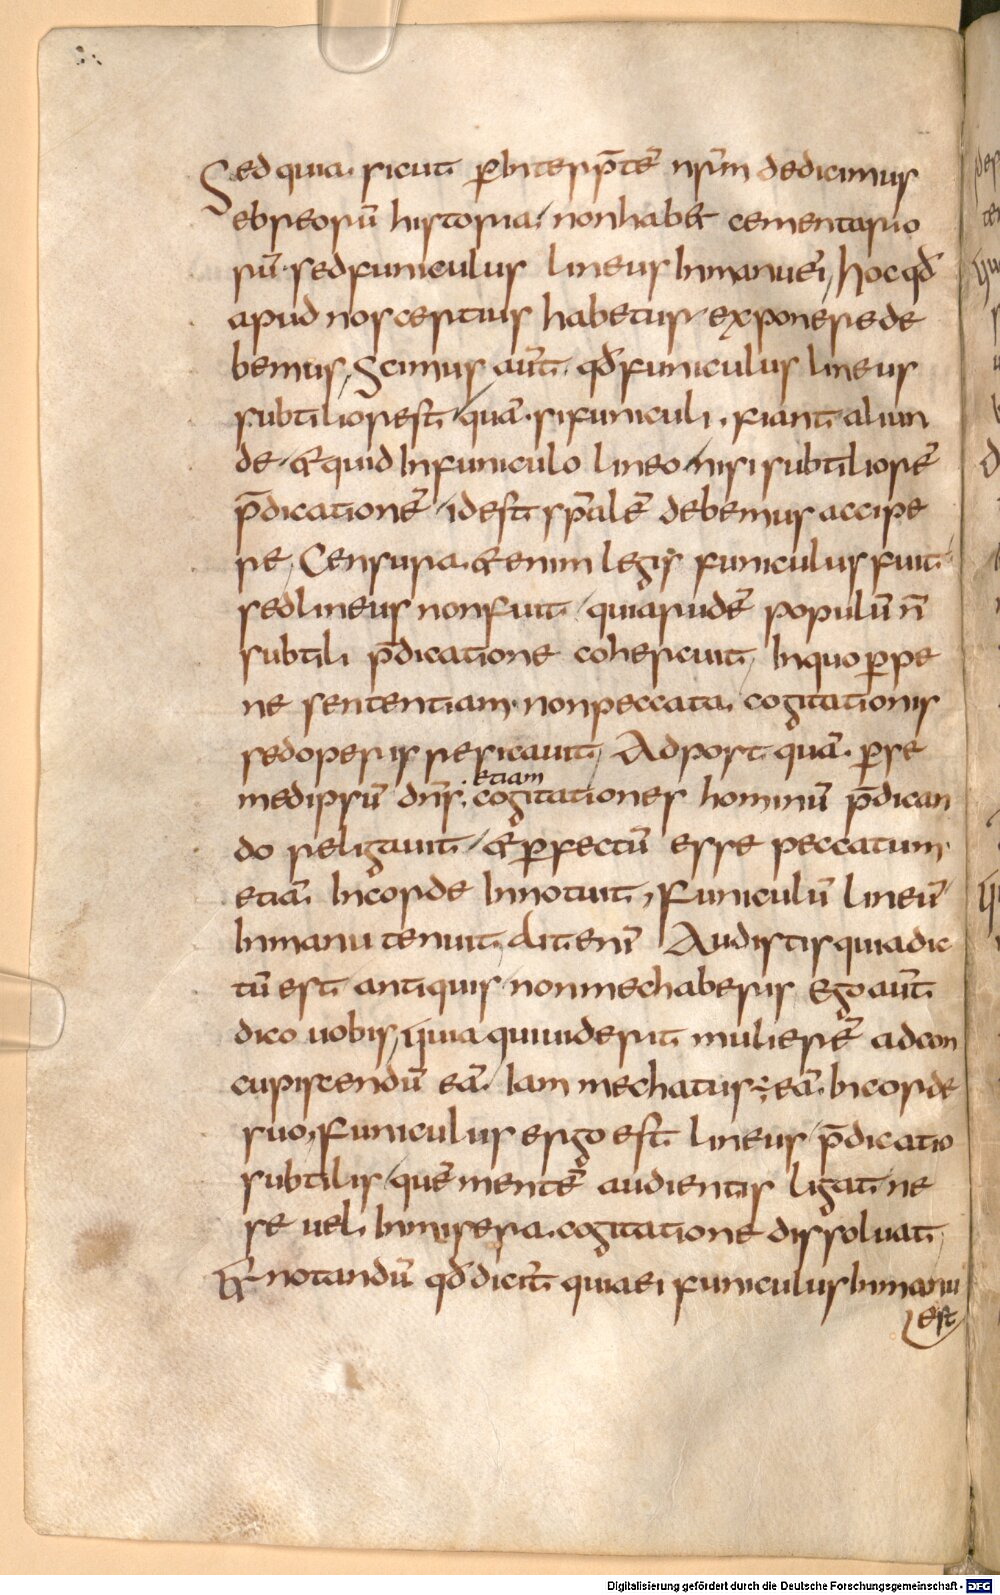 Sed quia. sicut ꝑ interp̄tē nr̄m dedicimus
ebreorū historia, non habet cementario
rū. sed funiculus lineus in manu ei, hoc qđ
apud nos certius habetur exponere de
bemus, Scimus aūt. qđ funiculus lineus
subtilior est quā. si funiculi. fiant aliun
de, et quid in funiculo lineo nisi subtiliorē
p̄dicationē, id est sp̄alē debemus accipe
re, Censura. et enim legis funiculus fuit
sed lineus non fuit, quia rudē populū n̄
subtili p̄dicatione cohercuit, In quo ꝑ pe
ne sententiam. non peccata. cogitationis
sed operis resicauit, Ad post quā. ꝑ se
met ipsū dn̄s, etiam cogitationes hominū p̄dican
do religauit, et ꝑfectū esse peccatum
etiā. in corde innotuit, Funiculū lineū
in manu tenuit. ait enī Audistis quia dic
tū est antiquis non mechaberis, Ego aūt
dico uobis, quia qui uiderit mulierē ad con
cupiscendū eā. iam mechatus ÷ eā. in corde
suo, funiculus ergo est lineus, p̄dicatio
subtilis, quē mentē audientis ligat, ne
se uel. in misera. cogitatione dissoluat,
Et notandū qđ dicit̄ quia ei funiculus in manu
est
Digitalisierung gefördert durch die Deutsche Forschungsgemeinschaft - DFG